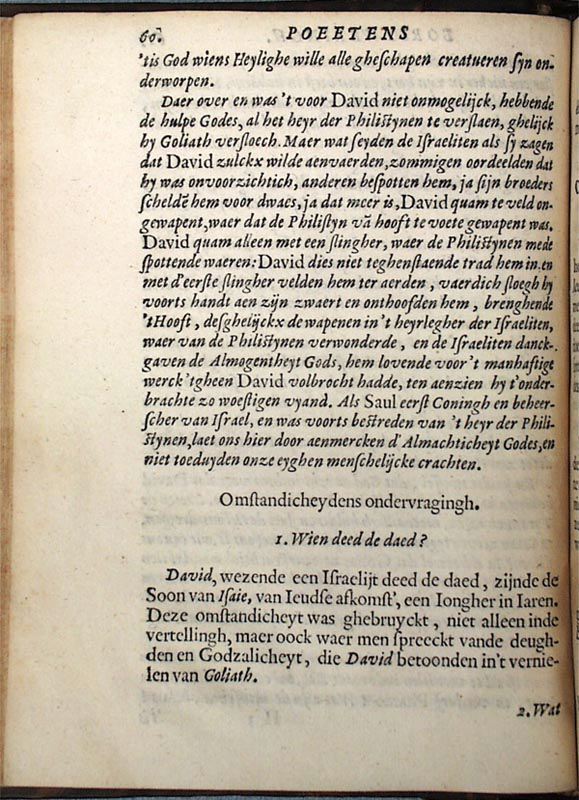 60. POEETENS
'tis God wiens Heylighe wille alle gheschapen creatueren sijn on-
derworpen.
Daer over en was 't voor David niet onmogelijck, hebbende
de hulpe Godes, al het heyr der Philistynen te verslaen, ghelijck
hy Goliath versloech. Maer wat seyden de Israeliten als sy zagen
dat David zulckx wilde aenvaerden, zommigen oordeelden dat
hy was onvoorzichtich, anderen bespotten hem, ja sijn broeders
scheldē hem voor dwaes, ja dat meer is, David quam te veld on-
gewapent, waer dat de Philistyn vā hooft te voete gewapent was.
David quam alleen met een slingher, waer de Philistynen mede
spottende waeren: David dies niet teghenstaende trad hem in. en
met d'eerste slingher velden hem ter aerden, vaerdich sloegh hy
voorts handt aen zijn zwaert en onthoofden hem, brenghende
't Hooft, desghelijckx de wapenen in 't heyrlegher der Israeliten,
waer van de Philistynen verwonderde, en de Israeliten danck-
gaven de Almogentheyt Gods, hem lovende voor 't manhaftige
werck 'tgheen David volbrocht hadde, ten aenzien hy t'onder-
brachte zo woestigen vyand. Als Saul eerst Coningh en beheer-
scher van Israel, en was voorts bestreden van 't heyr der Phili-
stynen, laet ons hier door aenmercken d'Almachticheyt Godes, en
niet toeduyden onze eyghen menschelijcke crachten.
Omstandicheydens ondervragingh.
1. Wien deed de daed?
David, wezende een Israelijt deed de daed, zijnde de
Soon van Isaie, van Ieudse afkomst', een Iongher in Iaren.
Deze omstandicheyt was ghebruyckt, niet alleen inde
vertellingh, maer oock waer men spreeckt vande deugh-
den en Godzalicheyt, die David betoonden in't vernie-
len van Goliath.
2. Wat